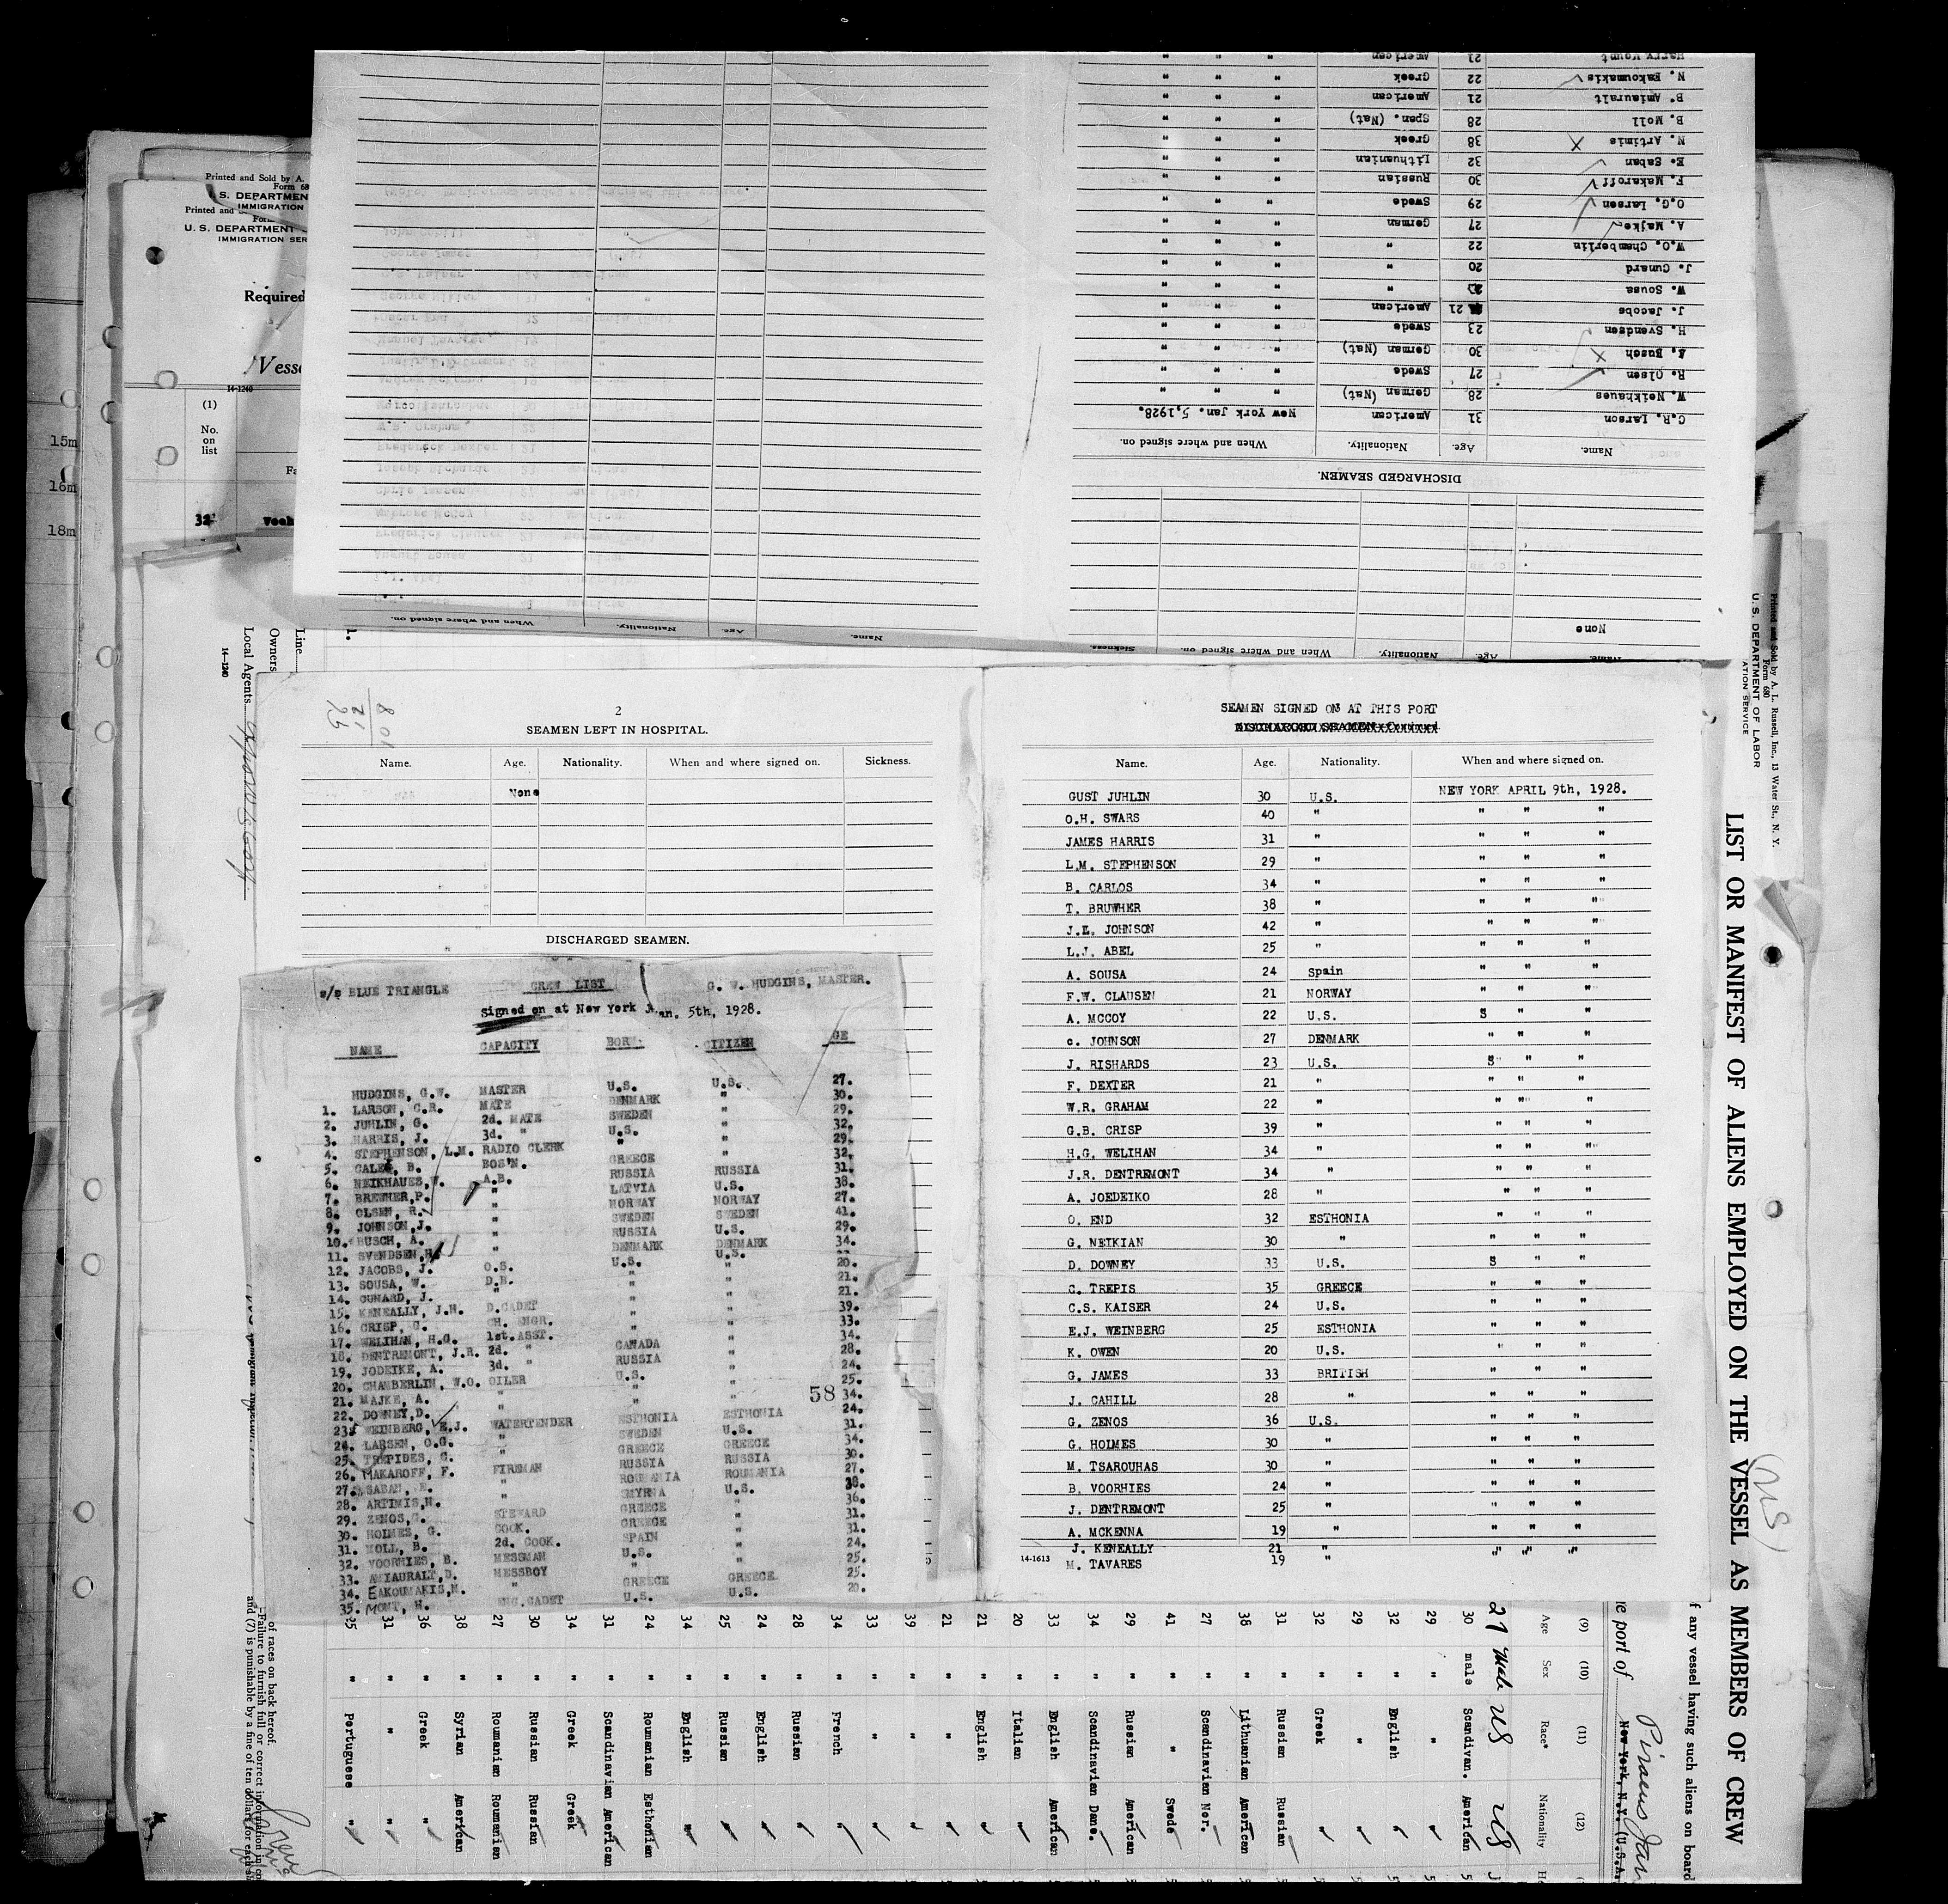 Printed and Sold by A.
Form 680
S. DEPARTMENT
IMMIGRATION
Printed and
U. S. DEPARTMENT
IMMIGRATION SER
Required
Vesse
14-1240
(1)
No.
on
list
Fa
32
15m
16m
18m
DISCHARGED SEAMEN.
Name. Age. Nationality. When and where signed on.
C.R. Larson 31 American New York Jan. 5,1928.
W. Neikhaues 28 German (Nat) " " "
R. Olsen 27 Swede " " "
Busch 30 German (Nat) " " "
H. Svendsen 23 Swede " " "
J. Jacobs 21 American " " "
W. Sousa " " " "
J. Cunard 20 " " " "
W.O. Chamberlin 22 " " " "
A. Majke 27 German " " "
O.G. Larsen 29 Swede " " "
F. Makaroff 30 Russian " " "
E. Saban 32 Lithuanian " " "
N. Artimis 38 Greek " " "
B. Moll 28 Span. (Nat) " " "
B. Amiauralt 21 American " " "
N. Eakoumakis 22 Greek " " "
Harry Mount 21 American " " "
None
Name. Age. Nationality. When and where signed on. Sickness.
Name. Age. Nationality. When and where signed on.
Line
Owners
Local Agents
14-1240
2
SEAMEN LEFT IN HOSPITAL.
Name. Age. Nationality. When and where signed on. Sickness.
None
DISCHARGED SEAMEN.
s/s BLUE TRIANGLE CREW LIST G. W. HUDGINS, MASTER.
Signed on at New York Jan. 5th, 1928.
NAME CAPACITY BORN CITIZEN GE
HUDGINS, G.W. MASTER U.S. U.S. 27.
1. LARSON, C.R. MATE DENMARK " 30.
2. JUHLIN, G. 2d. MATE SWEDEN " 29.
3. HARRIS, J. 3d. " U.S. " 32.
4. STEPHENSON, L.M. RADIO CLERK " " 29.
5. CALEG, B. BOS'N. GREECE " 32.
6. NEIKHAUES,W. A.B. RUSSIA RUSSIA 31.
7. BREWHER,P. " LATVIA U.S. 38.
8. OLSEN, R. " NORWAY NORWAY 27.
9. JOHNSON,J. " SWEDEN SWEDEN 41.
10. BUSCH, A. " RUSSIA U.S. 29.
11. SVENDSEN,H. " DENMARK DENMARK 34.
12. JACOBS, J. O.S. U.S. U.S.
13. SOUSA, W. D.B. " " 20.
14. CUNARD, J. " " " 21.
15. KENEALLY, J.H. D.CADET " " 21.
16. CRISP, G. CH. ENGR. " " 39.
17. WELIHAN, H.G. 1st.ASST. " " 33.
18. DENTREMONT, J.R. 2d. " CANADA " 34.
19. JODEIKE, A. 3d. " RUSSIA " 28.
20. CHAMBERLIN, W.O. OILER U.S. " 24.
21. MAJKE, A. " " " 25.
58
22. DOWNEY,D. " " " 34.
23. WEINBERG, E.J. WATERTENDER ESTHONIA ESTHONIA 24.
24. LARSEN, O.G. " SWEDEN U.S. 31.
25. TREPIDES, C. " GREECE GREECE 34.
26. MAKAROFF, F. FIREMAN RUSSIA RUSSIA 30.
27. SABAN, E. " ROUMANIA ROUMANIA 27.
28. ARTIMIS,N. " SMYRNA U.S. 38.
29. ZENOS,G. STEWARD GREECE " 36.
30. HOLMES, G. COOK. GREECE " 31.
31. MOLL, B. 2d. COOK. SPAIN " 31.
32. VOORHIES, B. MESSMAN U.S. " 24.
33. AMIAURALT,D. MESSBOY " " 25.
34. EAKOUMAKIS,N. " GREECE GREECE 25.
35. MONT, H. ENG.CADET U.S. U.S. 20.
SEAMEN SIGNED ON AT THIS PORT
Name. Age. Nationality. When and where signed on.
GUST JUHLIN 30 U.S. NEW YORK APRIL 9th, 1928.
O.H. SWARS 40 " " " "
JAMES HARRIS 31 " " " "
L.M. STEPHENSON 29 " " " "
B. CARLOS 34 " " " "
T. BRUWHER 38 " " " "
J.L. JOHNSON 42 " " " "
L.J. ABEL 25 " " " "
A. SOUSA 24 Spain " " "
F.W. CLAUSEN 21 NORWAY " " "
A. MCCOY 22 U.S. S " "
c. JOHNSON 27 DENMARK " " "
J. RISHARDS 23 U.S. S " "
F. DEXTER 21 " " " "
W.R. GRAHAM 22 " " " "
G.B. CRISP 39 " " " "
H.G. WELIHAN 34 " " " "
J.R. DENTREMONT 34 " " " "
A. JOEDEIKO 28 " " " "
O. END 32 ESTHONIA " " "
G. NEIKIAN 30 " " " "
D. DOWNEY 33 U.S. S " "
C. TREPIS 35 GREECE " " "
C.S. KAISER 24 U.S. " " "
E.J. WEINBERG 25 ESTHONIA " " "
K. OWEN 20 U.S. " " "
G. JAMES 33 BRITISH " " "
J. CAHILL 28 " " " "
G. ZENOS 36 U.S. " " "
G. HOLMES 30 " " " "
M. TSAROUHAS 30 " " " "
B. VOORHIES 24 " " " "
J. DENTREMONT 25 " " " "
A. MCKENNA 19 " " " "
J. KENEALLY 21 " " " "
14-1613 M. TAVARES 19 "
Printed and Sold by A. L. Russell, Inc., 13 Water St., N. Y.
Form 680
U. S. DEPARTMENT OF LABOR
ATION SERVICE
LIST OR MANIFEST OF ALIENS EMPLOYED ON THE VESSEL AS MEMBERS OF CREW
f any vessel having such aliens on board
e port of New York, N.Y. (U.S.A.
Piraeus
(9) (10) (11) (12)
Age Sex Race* Nationality
27 male US US
30 male Scandivan. American
29 " " "
32 " English "
29 " " "
32 " Greek "
31 " Russian Russian
38 " Lithuanian American
27 " Scandinavian Nor.
41 " " Swede
29 " Russian American
34 " Scandinavian Dane.
33 " English American
20 " Italian "
21 " English "
21 " " "
39 " " "
33 " " "
34 " French "
28 " Russian "
24 " English "
25 " Russian "
34 " English "
24 " Roumanian Esthonian
31 " Scandinavian American
34 " Greek Greek
30 " Russian Russian
27 " Roumanian Roumanian
38 " Syrian American
36 " Greek "
31 " " "
25 " Portuguese "
of races on back hereof.
Failure to furnish full or correct information in co
and (7) is punishable by a fine of ten dollars for each